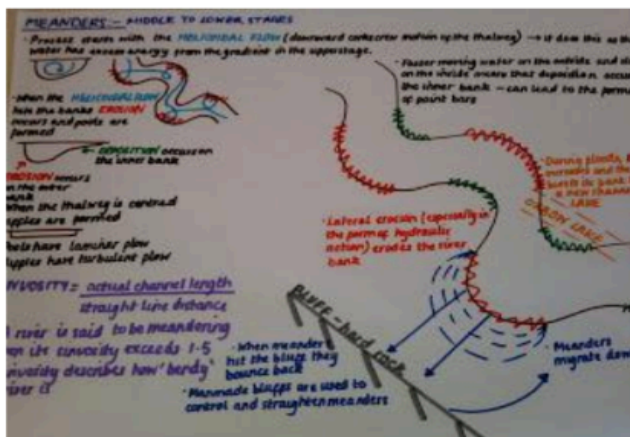 MEANDERS:- MIDDLE TO LOWER STAGES
Process starts with the HELICOIDAL FLOW (downward corkscrew motion of the thalweg) → it does this as the
water has excess energy from the gradient in the upperstage.
When the HELICOIDAL FLOW
hits the banks EROSION
occurs and pools are
formed
DEPOSITION occurs on
the inner bank
EROSION occurs
on the outer
bank
When the thalweg is central
riffles are formed
Pools have laminar flow
Riffles have turbulent flow
SINUOSITY = actual channel length
straight line distance
A river is said to be meandering
when its sinuosity exceeds 1.5
Sinuosity describes how 'bendy'
river is
Faster moving water on the outside and
on the inside means that deposition
the inner bank - can lead to the
of point bars
During floods,
and the
bursts its bank
a new channel
LAKE
OXBOW LAKE
Lateral erosion (especially in
the form of hydraulic
action) erodes the river
bank
BLUFF - hard rock
When meander
hit the bluff they
bounce back
Manmade bluffs are used to
control and straighten meanders
Meanders
migrate